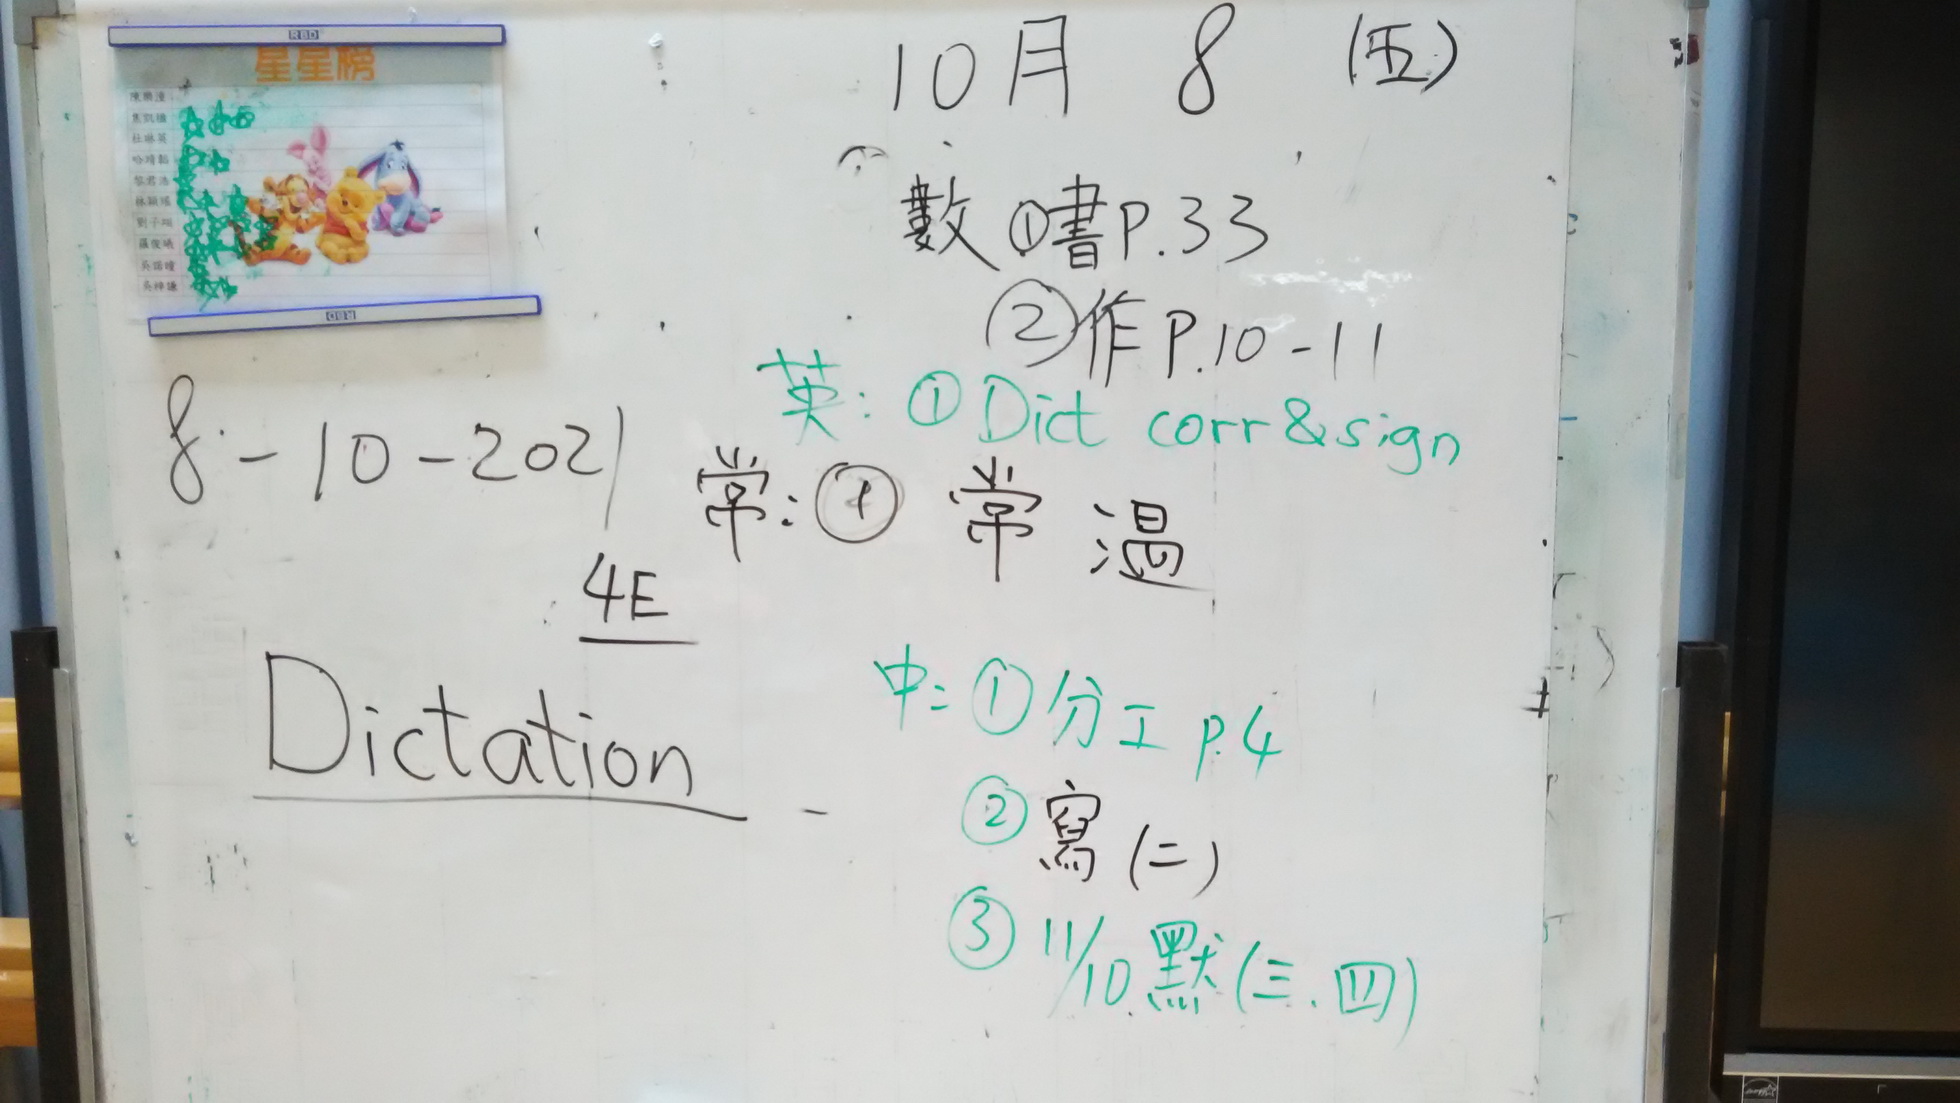 RBD
星星榜
RBD
10月 8 (五)
數 ①書P.33
②作P.10-11
英: ①Dict corr&sign
常: ① 常 温
中: ①分工 p.4
② 寫 (二)
③ 11/10 默(三.四)
8-10-2021
4E
Dictation